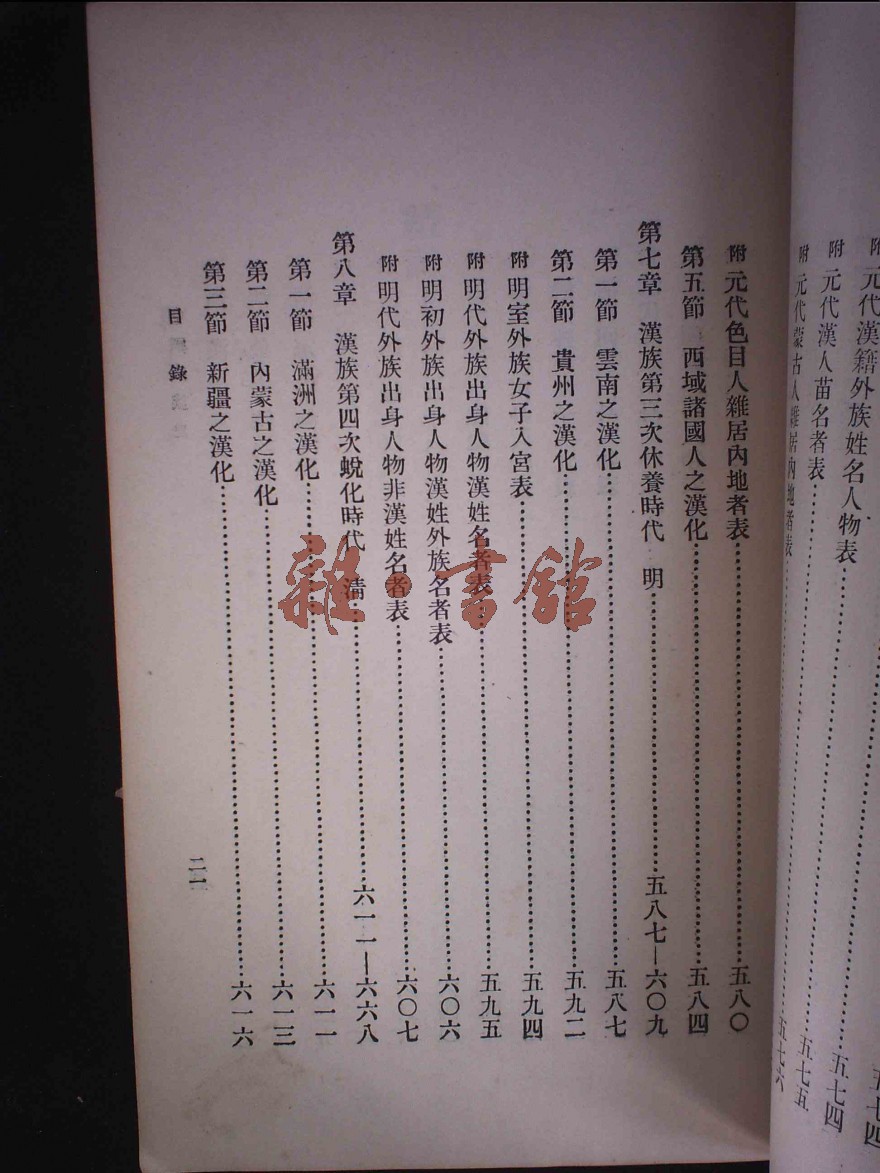 附 元代漢籍外族姓名人物表……五七四
附 元代漢人苗名者表……五七四
附 元代蒙古人雜居內地者表……五七五
五七六
附 元代色目人雜居內地者表……五八〇
第五節 西域諸國人之漢化……五八四
第七章 漢族第三次休養時代 明……五八七—六〇九
第一節 雲南之漢化……五八七
第二節 貴州之漢化……五九二
附 明室外族女子入宮表……五九四
附 明代外族出身人物漢姓名者表……五九五
附 明初外族出身人物漢姓外族名者表……六〇六
附 明代外族出身人物非漢姓名者表……六〇七
第八章 漢族第四次蛻化時代 清……六一一—六六八
第一節 滿洲之漢化……六一一
第二節 內蒙古之漢化……六一三
第三節 新疆之漢化……六一六
目錄
二一
雜·書館